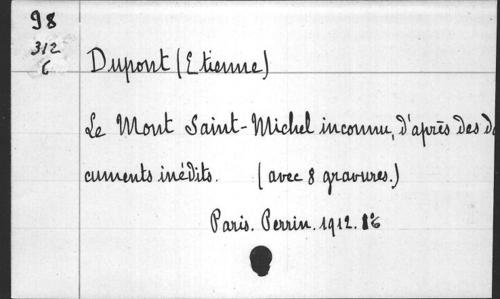 98
312
6
Dupont (Etienne)
Le Mont Saint-Michel inconnu, d'après des do
cuments inédits. (avec 8 gravures.)
Paris. Perrin. 1912. 16